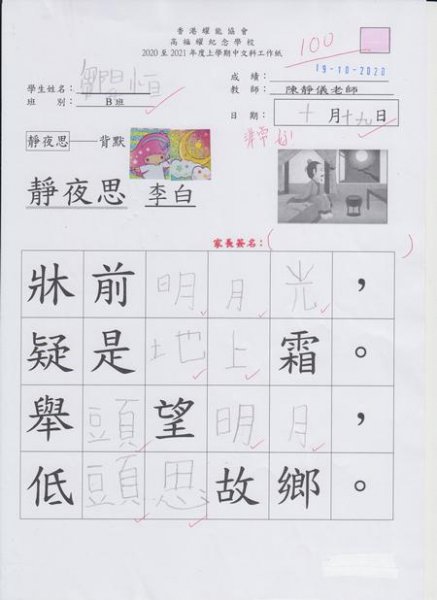 香港耀能協會
高福耀紀念學校
2020 至 2021 年度上學期中文科工作紙
100
成績：
19-10-2020
學生姓名：
教師：陳靜儀老師
班別：B班
日期：十月十九日
非常好!
靜夜思——背默
靜夜思 李白
家長簽名：( )
牀前明月光，
疑是地上霜。
舉頭望明月，
低頭思故鄉。